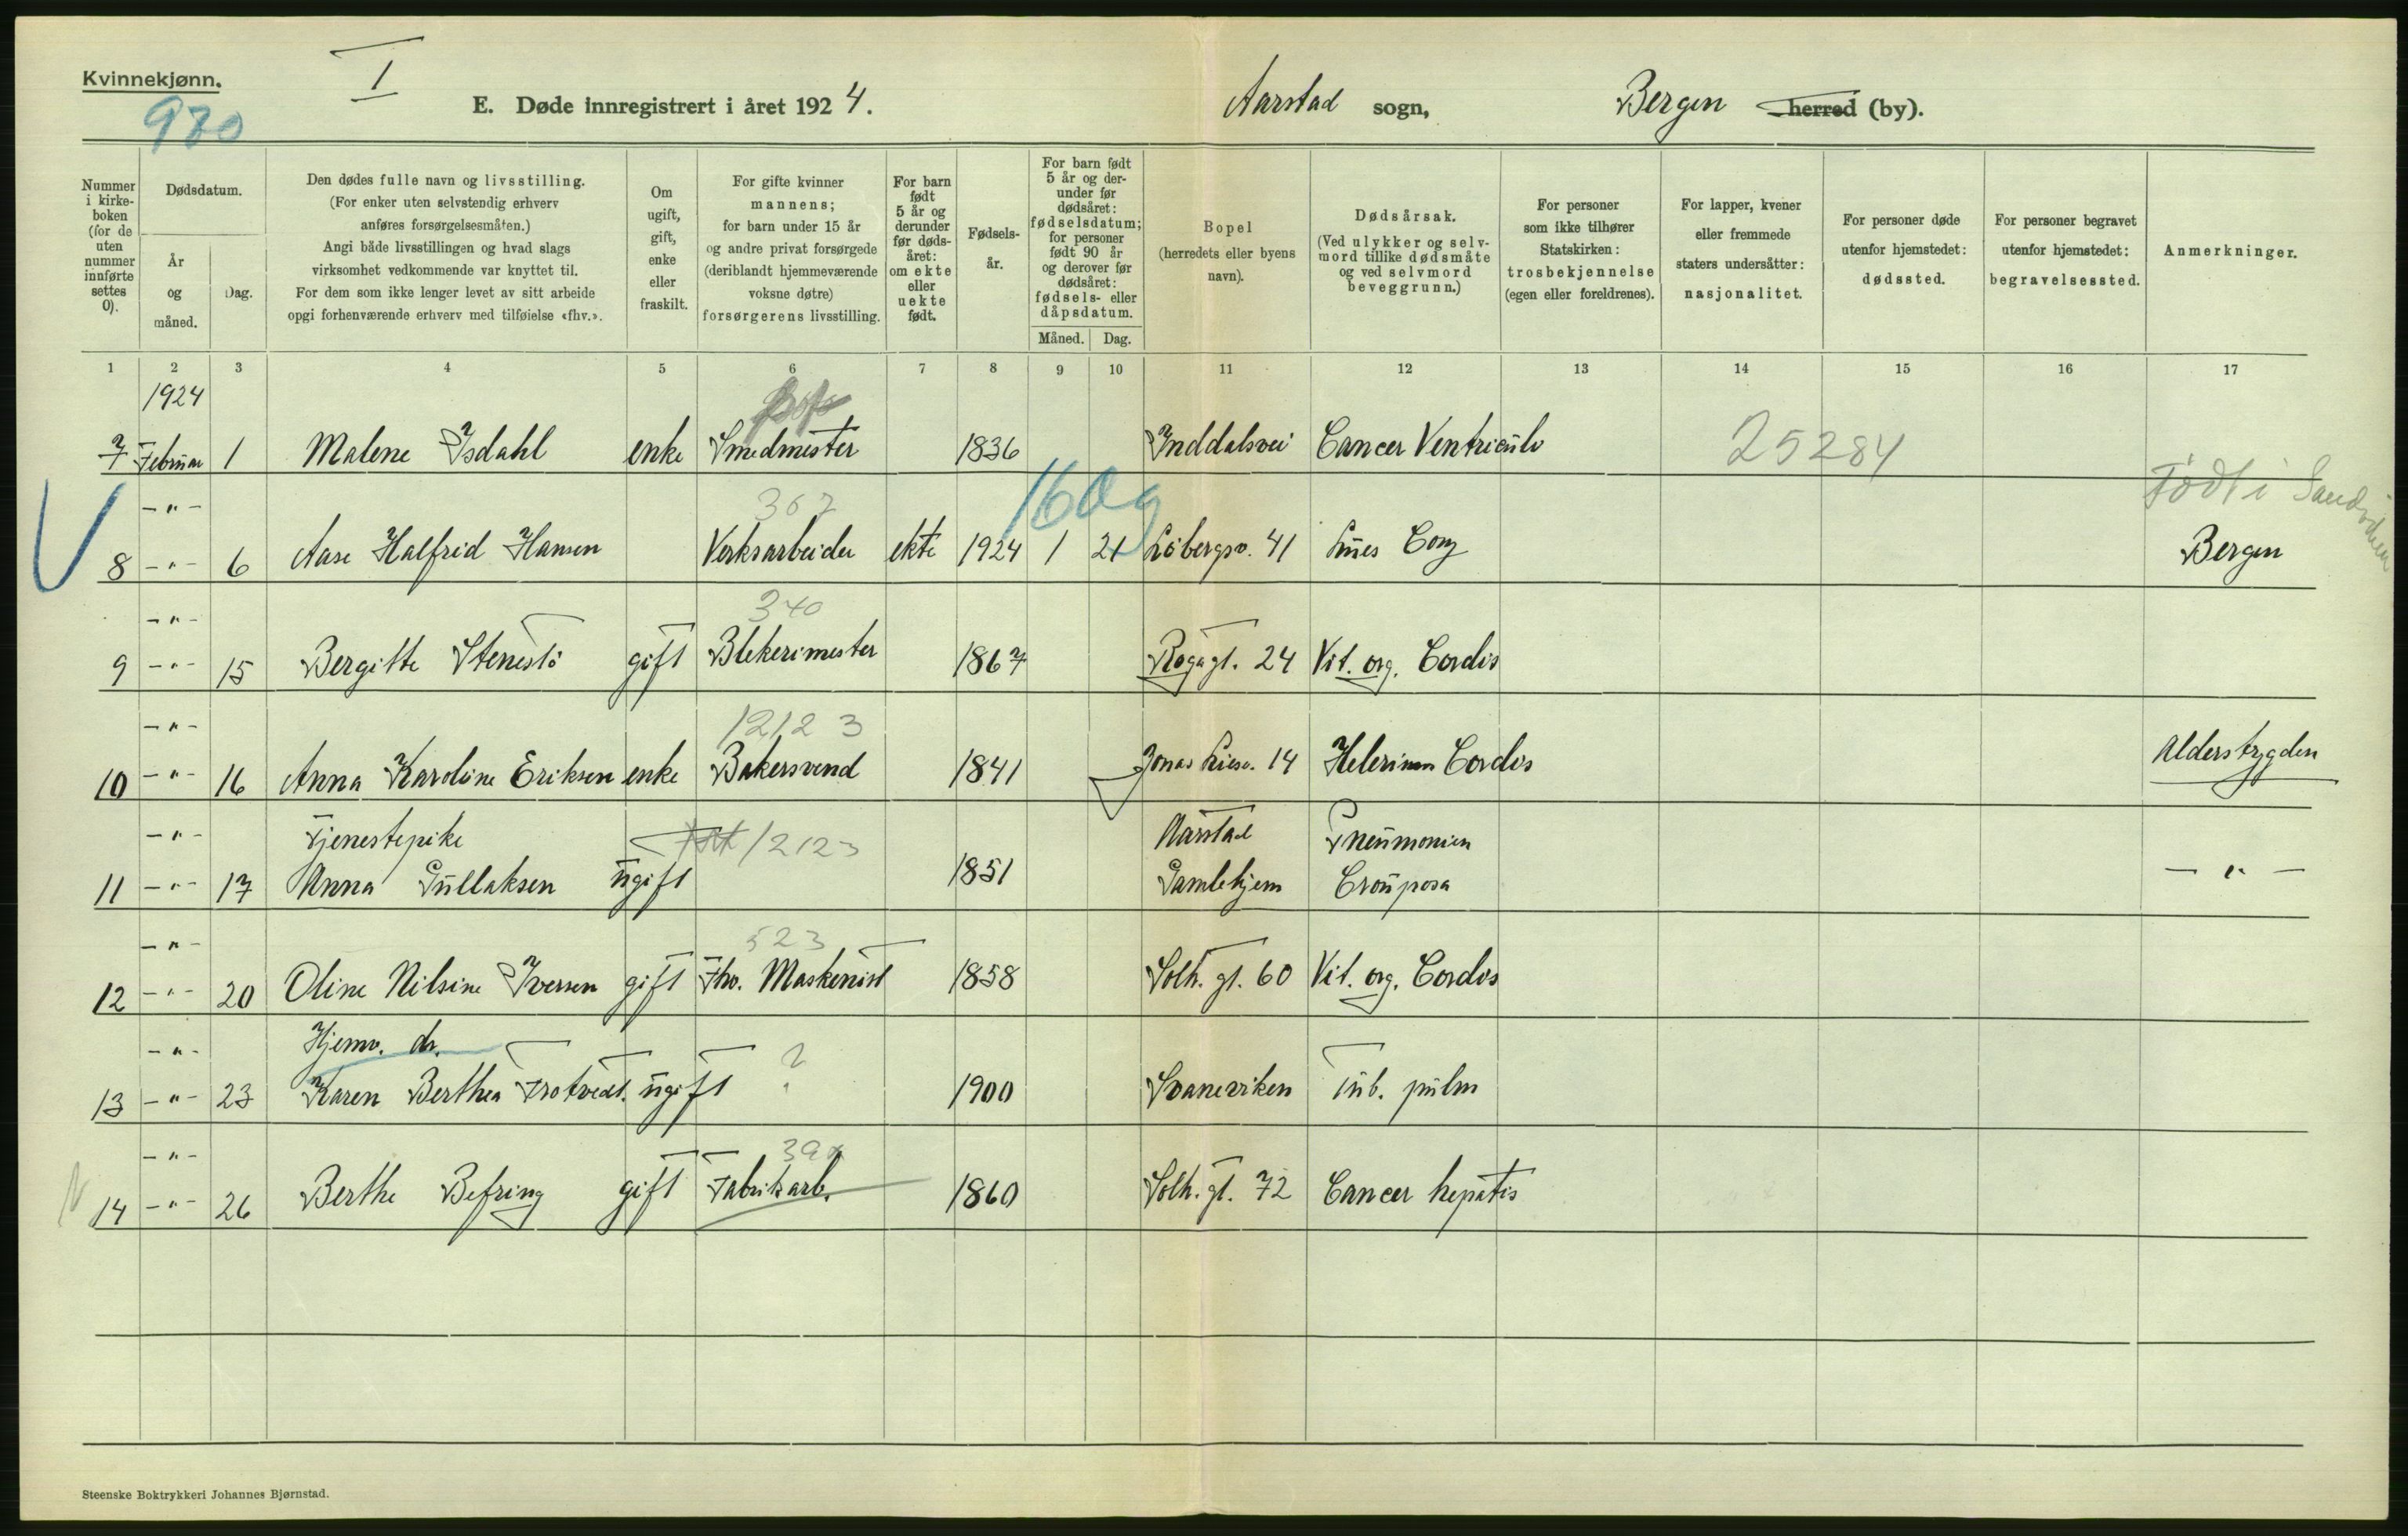 Kvinnekjønn.
I
980
E. Døde innregistrert i året 1924.
Aarstad sogn,
Bergen herred (by).
Nummer i kirke- boken (for de uten nummer innførte settes 0).
Dødsdatum.
År og måned.
Dag.
Den dødes fulle navn og livsstilling.
(For enker uten selvstendig erhverv
anføres forsørgelsesmåten.)
Angi både livsstillingen og hvad slags
virksomhet vedkommende var knyttet til.
For dem som ikke lenger levet av sitt arbeide
opgi forhenværende erhverv med tilføielse «fhv.».
Om ugift, gift, enke eller fraskilt.
For gifte kvinner
mannens;
for barn under 15 år
og andre privat forsørgede
(deriblandt hjemmeværende
voksne døtre)
forsørgerens livsstilling.
For barn født 5 år og derunder før døds- året: om ekte eller uekte født.
Fødsels- år.
For barn født 5 år og der- under før dødsåret: fødselsdatum; for personer født 90 år og derover før dødsåret: fødsels- eller dåpsdatum.
Måned. Dag.
Bopel
(herredets eller byens
navn).
Dødsårsak.
(Ved ulykker og selv-
mord tillike dødsmåte
og ved selvmord
beveggrunn.)
For personer
som ikke tilhører
Statskirken:
trosbekjennelse
(egen eller foreldrenes).
For lapper, kvener
eller fremmede
staters undersåtter:
nasjonalitet.
For personer døde
utenfor hjemstedet:
dødssted.
For personer begravet
utenfor hjemstedet:
begravelsessted.
Anmerkninger.
1 2 3 4 5 6 7 8 9 10 11 12 13 14 15 16 17
1924
7 Februar 1 Malene Isdahl enke Smedmester 1836 Inddalsvei Cancer Ventriculi 25284
Født i
-"- 367 160g
8 -"- 6 Aase Halfrid Hansen Verksarbeider ekte 1924 1 21 Løbergsv. 41 Lues Cong Bergen
-"- 340
9 -"- 15 Bergitte Stenestø gift Blekerimester 1867 Rogagt. 24 Vit. org. Cordis
-"- 12123
10 -"- 16 Anna Karoline Eriksen enke Bakersvend 1841 Jonas Liesv. 14 Cordis Alderstrygden
-"- Tjenestepike 12123 Aarstad Pneumonien
11 -"- 17 Anna Gullaksen ugift 1851 Gamlehjem Crouposa -"-
-"- 523
12 -"- 20 Oline Nilsine Iversen gift Fhv. Maskenist 1858 Solh. gt. 60 Vit. org. Cordis
-"- Hjemv. dr. ?
13 -"- 23 Karen Berthea Trotvedt. ugift 1900 Svaneviken Tub. pulm
-"- 39x
14 -"- 26 Berthe Befring gift Fabrikarb. 1860 Solh. gt. 72 Cancer hepatis
Steenske Boktrykkeri Johannes Bjørnstad.